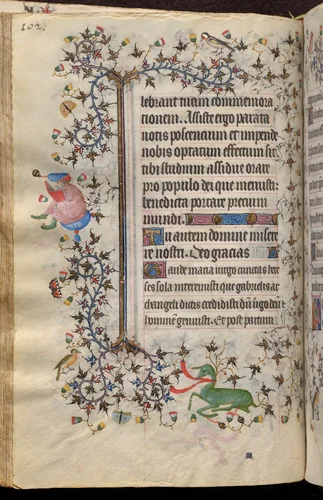 102
lebrant tuam commemora
tionem. Assiste ergo parata
votis poscencium et impende
nobis optatum effectum sit
tibi studium assidue orare
pro populo dei que meruisti
benedicta portare precium
mundi.
Tu autem domine misere
re nostri. Deo gracias
Gaude maria virgo cunctas here
ses sola interemisti que gabrielis ar
changeli dictis credidisti dum virgo deum et
hominem genuisti. Et post partum